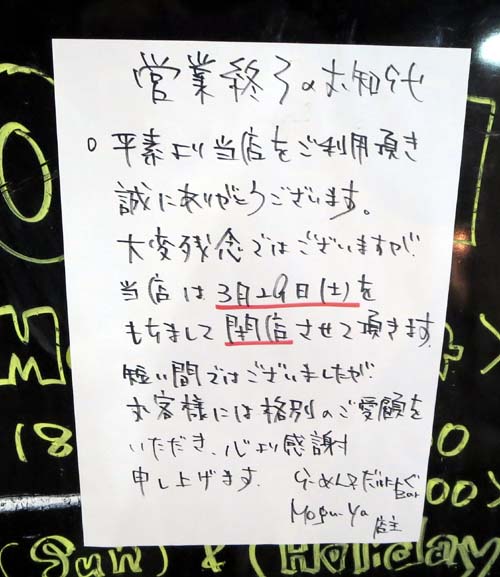 営業終了のお知らせ
○ 平素より当店をご利用頂き
誠にありがとうございます。
大変残念ではございますが
当店は3月29日(土)を
もちまして閉店させて頂きます
短い間ではございましたが
お客様には格別のご愛顧を
いただき、心より感謝
申し上げます. らーめん&だいにんぐ
Bar
Mogu-Ya 店主
18
(Sun) & (Holiday